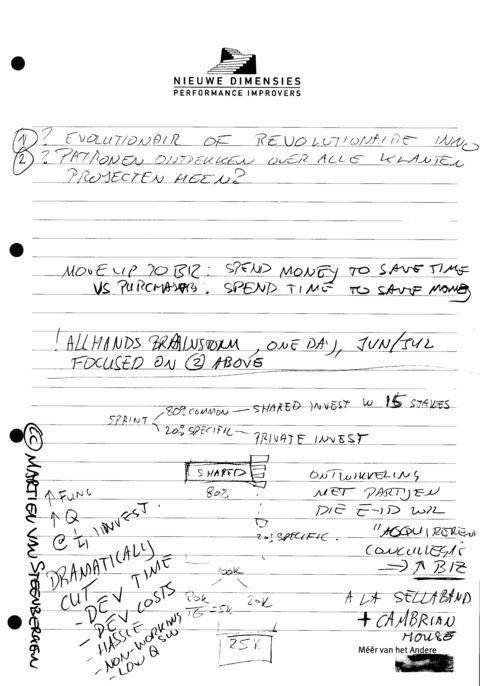 NIEUWE DIMENSIES
PERFORMANCE IMPROVERS
1 ? EVOLUTIONAIR OF REVOLUTIONAIRE INNO
2 ? PATRONEN ONTDEKKEN OVER ALLE KLANTEN
PROJECTEN HEEN?
MOVE UP TO BIZ: SPEND MONEY TO SAVE TIME
VS PURCHASERS: SPEND TIME TO SAVE MONEY
! ALL HANDS BRAINSTORM, ONE DAY, JUN/JUL
FOCUSED ON 2 ABOVE
SPRINT
80% COMMON — SHARED INVEST W 15 STAKES
20% SPECIFIC — PRIVATE INVEST
SHARED
80%
20% SPECIFIC.
100K
80K
/16 = 5K
20K
25K
ONTWIKKELING
MET PARTIJEN
DIE E-ID WIL
"ACQUIREREN
CONCULLEGA'S
→ ↑ BIZ
A LA SELLABAND
+ CAMBRIAN
HOUSE
↑ FUNC
↑ Q
@ INVEST.
DRAMATICALLY
CUT
- DEV TIME
- DEV COSTS
- HASSLE
- NON-WORKING SW
- LOW Q
(CC) MARTIEN VAN STEENBERGEN
Méér van het Andere